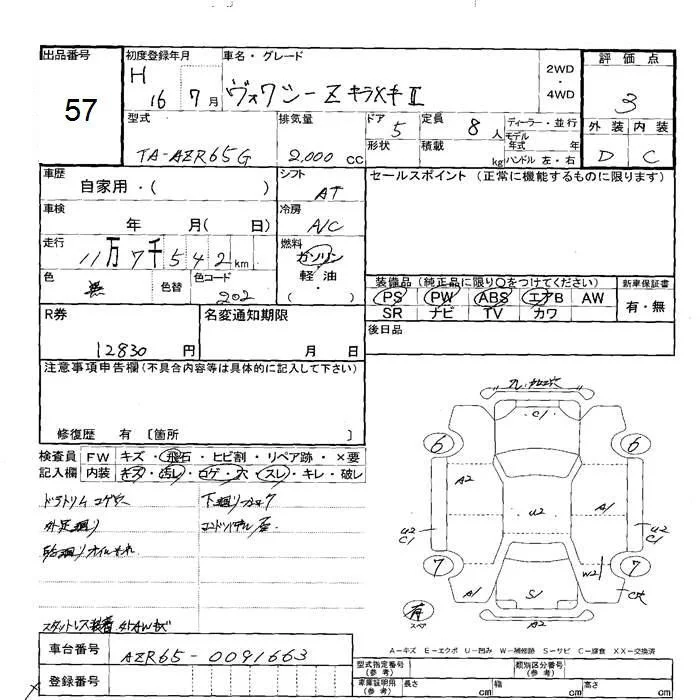 出品番号 57
初度登録年月 H 16 7月
車名・グレード ヴォクシー Z キラメキⅡ
2WD ・ 4WD
評価点 3
外装 内装
D C
型式 TA-AZR65G
排気量 2,000 cc
ドア 5 形状
定員 8人 積載 kg
ディーラー・並行
モデル年式 年
ハンドル 左・右
車歴 自家用・( )
シフト AT
セールスポイント (正常に機能するものに限ります)
車検 年 月( 日)
冷房 A/C
走行 11万7千542km
燃料 ガソリン 軽油 ( )
色 黒 色替 色コード 202
装備品 (純正品に限り○をつけてください) 新車保証書
PS PW ABS エアB AW
SR ナビ TV カワ
有・無
R券 12830円
名変通知期限 月 日
後日品
注意事項申告欄(不具合内容等は具体的に記入して下さい)
修復歴 有 〔箇所 〕
検査員 FW キズ・飛石・ヒビ割・リペア跡・×要
記入欄 内装 キズ・汚レ・コゲ・穴・スレ・キレ・破レ
下廻り
外 廻り
オイルモレ
スタットレス装着
C1
6 6
A2 A1
U2
U2 C1 U2 C1
7 7
W2
A1 S1
有 スペア
A2
A-キズ E-エクボ U-凹み W-補修跡 S-サビ C-腐食 XX-交換済
車台番号 AZR65-0091663
登録番号
型式指定番号(参考) 類別区分番号(参考)
車庫証明用(参考) 長さ cm 幅 cm 高さ cm